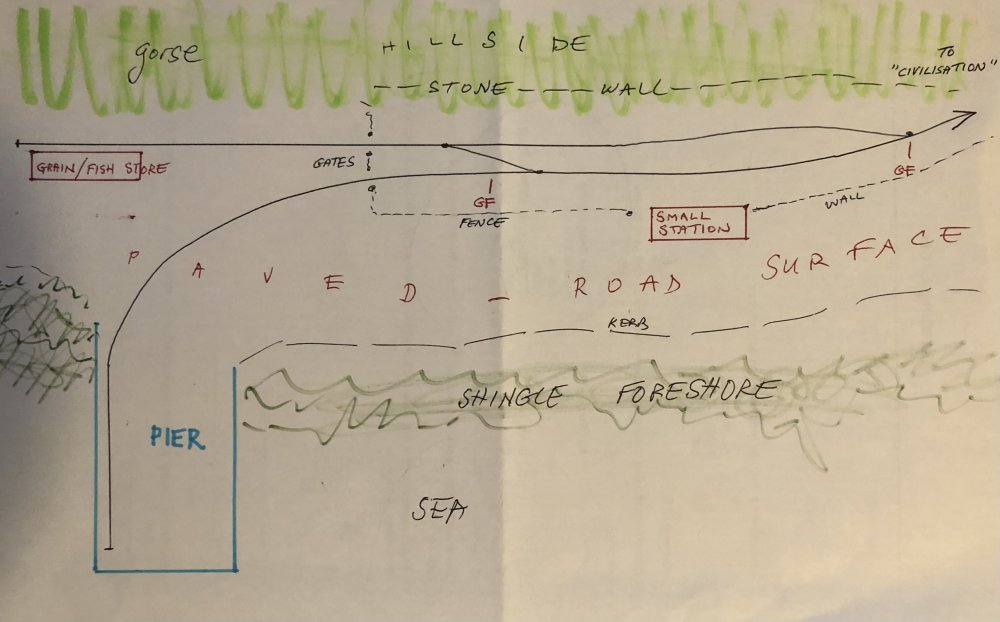 gorse
HILLSIDE
TO
"CIVILISATION"
STONE WALL
GRAIN/FISH STORE
GATES
GF
GF
FENCE
SMALL
STATION
WALL
PAVED - ROAD SURFACE
KERB
SHINGLE FORESHORE
PIER
SEA